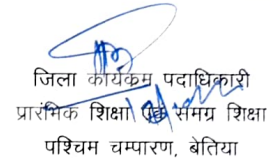 जिला कार्यक्रम पदाधिकारी
प्रारंभिक शिक्षा एवं समग्र शिक्षा
पश्चिम चम्पारण, बेतिया